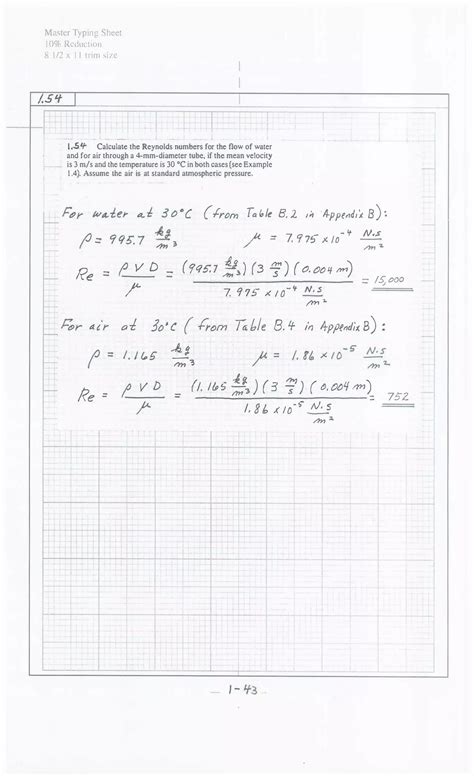 Master Typing Sheet
10% Reduction
8 1/2 x 11 trim size
1.54
1.54 Calculate the Reynolds numbers for the flow of water
and for air through a 4-mm-diameter tube, if the mean velocity
is 3 m/s and the temperature is 30 °C in both cases (see Example
1.4). Assume the air is at standard atmospheric pressure.
For water at 30°C (from Table B.2 in Appendix B):
ρ = 995.7 kg/m³ μ = 7.975 x 10⁻⁴ N·s/m²
Re = ρVD/μ = (995.7 kg/m³)(3 m/s)(0.004 m) / 7.975 x 10⁻⁴ N·s/m² = 15,000
For air at 30°C (from Table B.4 in Appendix B):
ρ = 1.165 kg/m³ μ = 1.86 x 10⁻⁵ N·s/m²
Re = ρVD/μ = (1.165 kg/m³)(3 m/s)(0.004 m) / 1.86 x 10⁻⁵ N·s/m² = 752
1-43